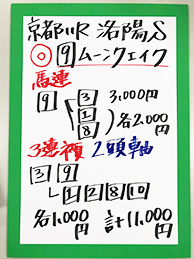 京都11R 洛陽S
◎ 9 ムーンクェイク
馬連
9 3 3,000円
1 8 各2,000円
3連複 2頭軸
3 9
1 2 8 10
各1,000円 計11,000円